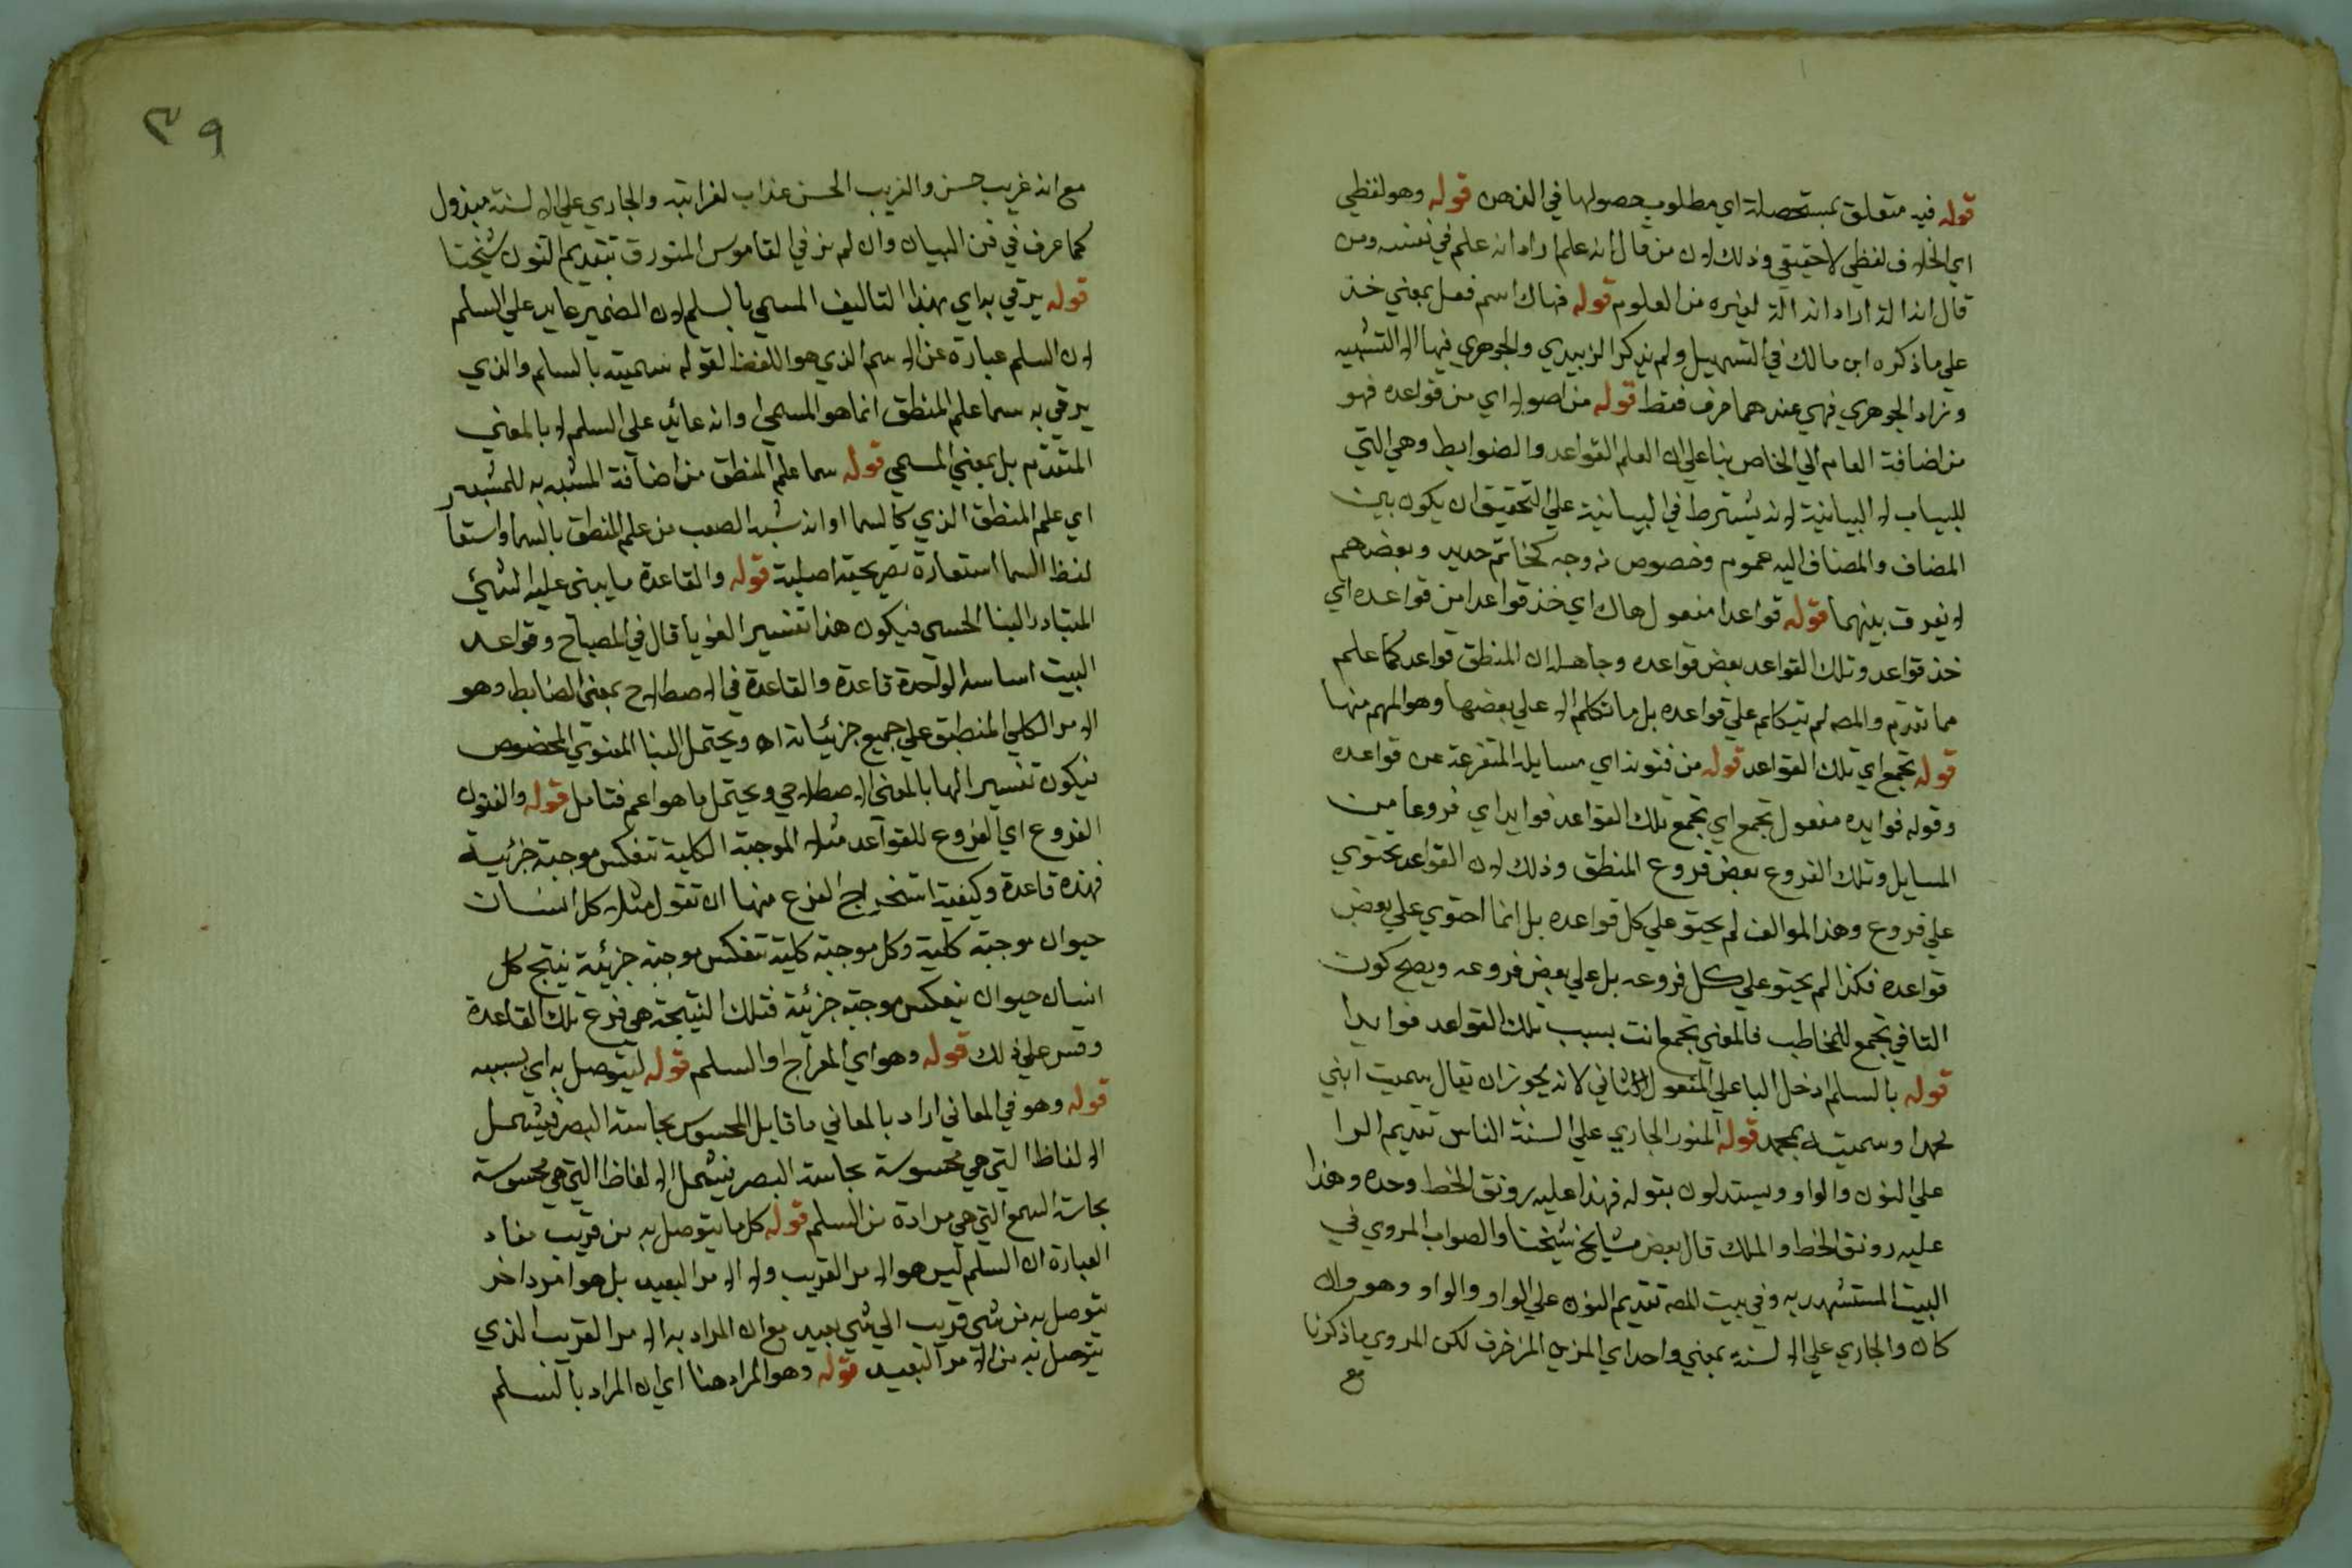 قوله فيه متعلق بمستحصلة اي مطلوب حصولها في الذهن قوله وهو لفظي
اي الخلاف لفظي لا حقيقي وذلك لان من قال انه علم اراد انه علم في نفسه ومن
قال انه الة اراد انه الة لغيره من العلوم قوله فهاك اسم فعل بمعني خذ
علي ما ذكره ابن مالك في التسهيل ولم يذكر الزبيدي والجوهري فيها الا التنبيه
وزاد الجوهري فهي عندهما حرف فقط قوله من اصوله اي من قواعده فهو
من اضافة العام الي الخاص بنا علي ان العلم القواعد والضوابط وهي التي
للبيان لا البيانية لانه يشترط في البيانية علي التحقيق ان يكون بين
المضاف والمضاف اليه عموم وخصوص من وجه كخاتم حديد وبعضهم
لا يفرق بينهما قوله قواعدا مفعول هاك اي خذ قواعدا من قواعده اي
خذ قواعد وتلك القواعد بعض قواعده وحاصله ان المنطق قواعد كما علم
مما تقدم والمصه لم يتكلم علي قواعده بل ما تكلم الا علي بعضها وهو المهم منها
قوله تجمع اي تلك القواعد قوله من فنونه اي مسايله المتفرعة عن قواعده
وقوله فوايده مفعول تجمع اي تجمع تلك القواعد فوايد اي فروعا من
المسايل وتلك الفروع بعض فروع المنطق وذلك لان القواعد تحتوي
علي فروع وهذا الموالف لم يحتو علي كل قواعده بل انما احتوي علي بعض
قواعده فكذا لم يحتو علي كل فروعه بل علي بعض فروعه ويصح كون
التا في تجمع للمخاطب فالمعني تجمع انت بسبب تلك القواعد فوايدا
قوله بالسلم ادخل البا علي المفعول الثاني لانه يجوز ان يقال سميت ابني
محمدا وسميته بمحمد قوله المنورق الجاري علي السنة الناس تقديم الرا
علي النون والواو ويستدلون بقوله فهذا عليه رونق الخط وحده وهذا
عليه رونق الخط والملك قال بعض مشايخ شيخنا والصواب المروي في
البيت المستشهد به وفي بيت المصه تقديم النون علي الواو والواو وهو وان
كان والجاري علي الالسنة بمعني واحد اي المزين المزخرف لكن المروي ما ذكرنا
مع
٣٩
مع انه غريب حسن والغريب الحسن عذاب لغرابته والجاري علي الالسنة مبذول
كما عرف في فن البيان وان لم نر في القاموس المنورق بتقديم النون شيخنا
قوله يرقي به اي بهذا التاليف المسمي بالسلم لان الضمير عايد علي السلم
لان السلم عبارة عن الاسم الذي هو اللفظ لقوله سميته بالسلم والذي
يرقي به سما علم المنطق انما هو المسمي وانه عائد علي السلم لا بالمعني
المتقدم بل بمعني المسمي قوله سما علم المنطق من اضافة المشبه به للمشبه
اي علم المنطق الذي كالسما او انه شبه الصعب من علم المنطق بالسما واستعار
لفظ السما استعارة تصريحية اصلية قوله والقاعدة ما يبني عليه الشيء
المتبادر البنا الحسي فيكون هذا تفسيرا لغويا قال في المصباح وقواعد
البيت اساسه الواحدة قاعدة والقاعدة في الاصطلاح بمعني الضابط وهو
الامر الكلي المنطبق علي جميع جزئياته اه ويحتمل البنا المعنوي المخصوص
فيكون تفسيرا لها بالمعني الاصطلاحي ويحتمل ما هو اعم فتامل قوله والفنون
الفروع اي الفروع للقواعد مثلا الموجبة الكلية تنعكس موجبة جزئية
فهذه قاعدة وكيفية استخراج الفرع منها ان تقول مثلا كل انسان
حيوان موجبة كلية وكل موجبة كلية تنعكس موجبة جزئية ينتج كل
انسان حيوان ينعكس موجبة جزئية فتلك النتيجة هي فرع تلك القاعدة
وقس علي ذلك قوله وهو اي المعراج والسلم قوله ليتوصل به اي بسببه
قوله وهو في المعاني اراد بالمعاني ما قابل المحسوس بحاسة البصر فيشمل
الالفاظ التي هي محسوسة بحاسة البصر فيشمل الالفاظ التي هي محسوسة
بحاسة السمع التي هي مرادة من السلم قوله كل ما يتوصل به من قريب مفاد
العبارة ان السلم ليس هو الامر القريب ولا الامر البعيد بل هو امر اخر
يتوصل به من شي قريب الي شي بعيد مع ان المراد به الامر القريب الذي
يتوصل به من الامر البعيد قوله وهو المراد هنا اي ان المراد بالسلم